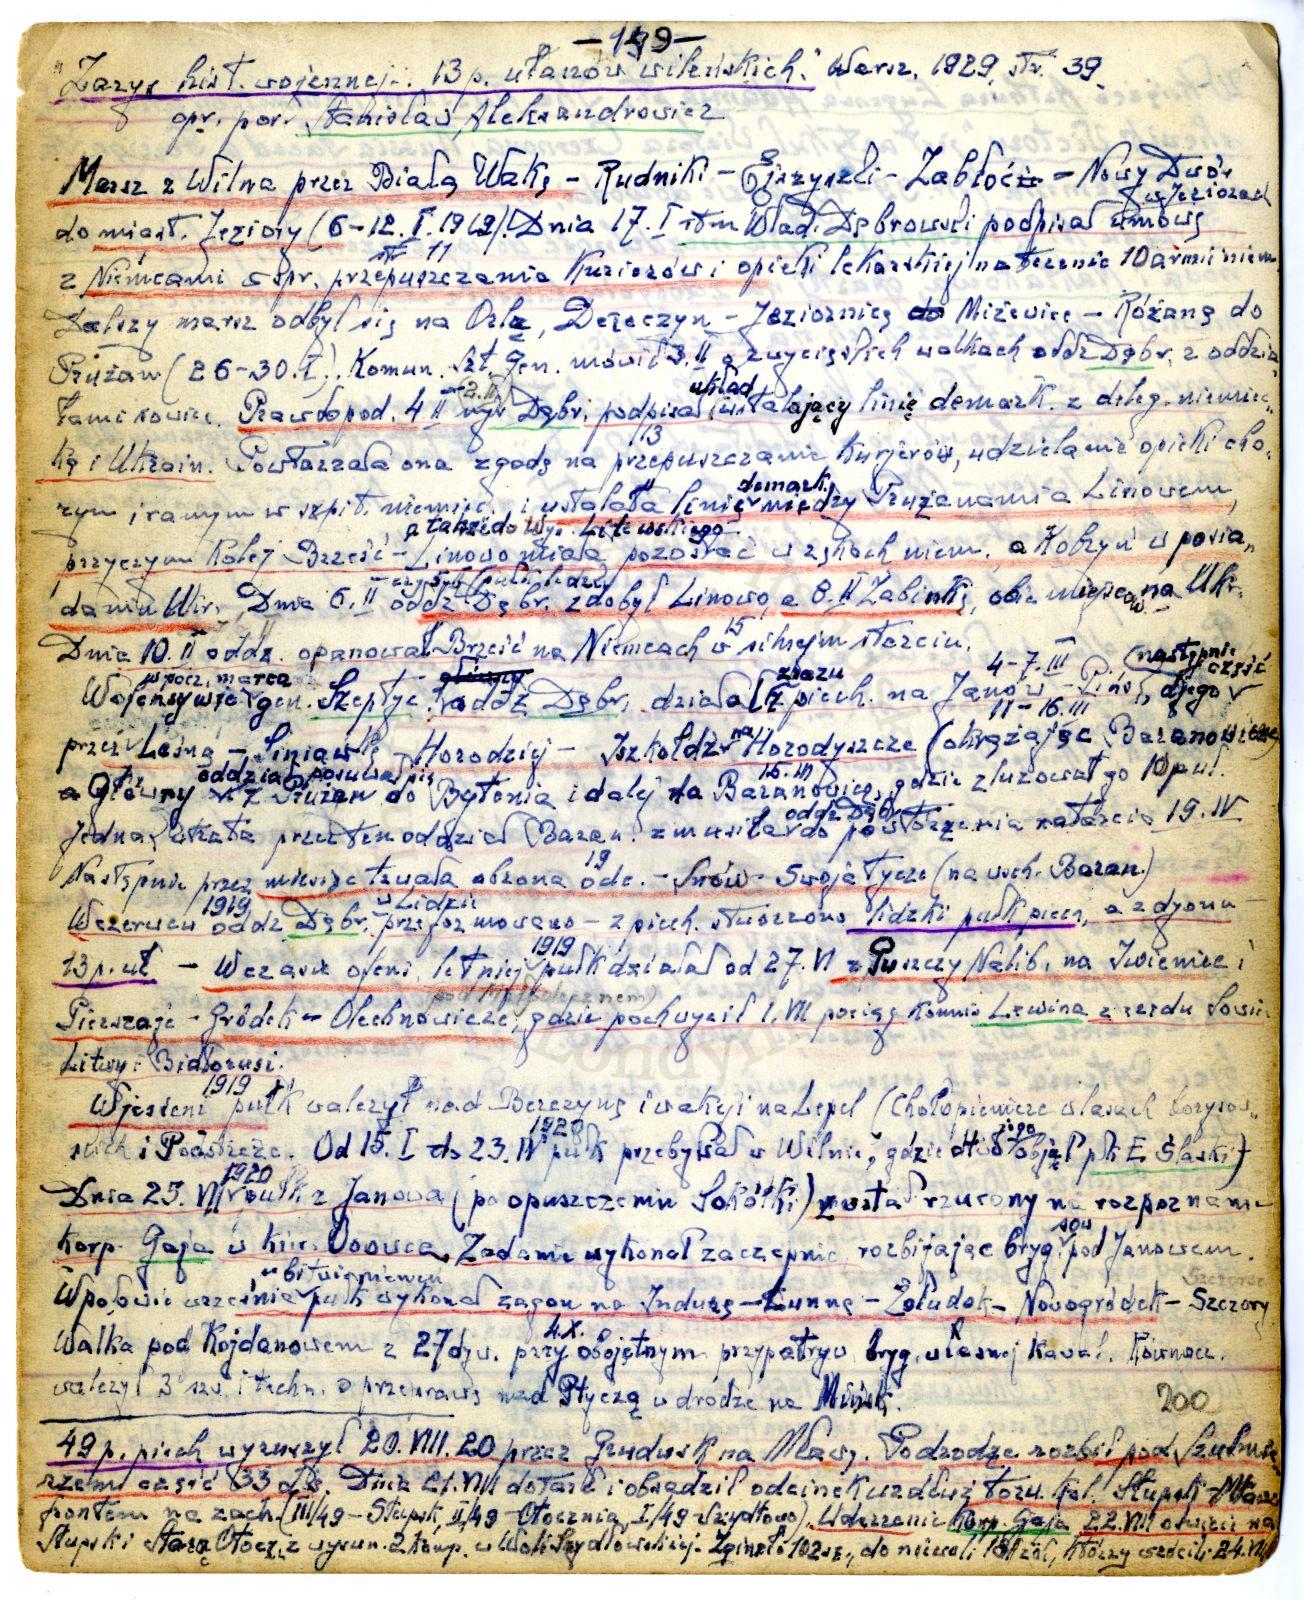 —149—
"Zarys hist. wojennej. 13 p. ułanów wileńskich." Warsz. 1929, str. 39.
opr. por. Stanisław Aleksandrowicz
Marsz z Wilna przez Białą Wakę – Rudniki – Ejszyszki – Zabłocie – Nowy Dwór
w Jeziorach
do miast. Jeziory (6–12.I.1919). Dnia 17.I rtm Wład. Dąbrowski podpisał umowę
str. 11
z Niemcami w spr. przepuszczania Kurierów i opieki lekarskiej na terenie 10 armii niem.
Dalszy marsz odbył się na Orlę, Dereczyn – Jeziornicę do Miżewicę – Różanę do
Prużan (26–30.I). Komun. Szt. Gen. mówił 3.II o zwycięskich walkach oddz. Dąbr. z oddzia
– 2.II układ
łami sowiec. Prawdopod. 4.II Dąbr. podpisał ustalający linię demark. z deleg. niemiec
13
ką i Ukrain. Powtarzała ona zgodę na przepuszczanie Kurjerów, udzielanie opieki cho-
demark.
rym i rannym w szpit. niemiec. i ustalała linię między Prużanami a Linowem,
a także do Wys. Litewskiego
przyczym kolej Brześć – Linowo miała pozostać w rękach niem. a Kobryń w posia
daniu Ukr. Dnia 6.II oddz. Dąbr. zdobył Linowo, a 8.II Żabinkę, obie miejscow. na Ukr.
15
Dnia 10.II oddz. opanował Brześć na Niemcach w silnym starciu.
w pocz. marca zrazu 4–7.III następnie
W ofensywie gen. Szeptyc. oddz. Dąbr. działał z piech. na Janów – Pińsk, część
11–16.III
przez Leśną – Siniawkę – Horodziej – Iszkołdź na Horodyszcze (okrążając Baranowicze)
oddział posuwał się 15.III
a Główny z Prużan do Bytenia i dalej na Baranowicze, gdzie zluzował go 10 puł.
oddz. Dąbr.
Jedna utrata przez ten oddział Baran. zmusiła do powtórzenia natarcia 19.IV
19
Następnie przez miesiąc trwała obrona odc. – Snów – Swojatycze (na wsch. Baran.)
1919 w Lidzie
W czerwcu oddz. Dąbr. przeformowano – z piech. stworzono lidzki pułk piech, a z dyonu –
1919
13 p. uł – W czasie ofens. letniej pułk działał od 27.VI z Puszczy Nalib. na Iwieniec i
(pod Mołodecznem)
Pierszaje – Gródek – Olechnowicze, gdzie pochwycił 1.VII pociąg Lewina z rządu Sowie
Litwy i Białorusi.
1919
W jesieni pułk walczył nad Berezyną i w akcji na Lepel (Chołopienicze w lasach borysow
1920
skich i Podstreże. Od 15.I do 23.IV pułk przebywał w Wilnie, gdzie d-two objął płk E. Ślaski)
1920
Dnia 25.VII pułk z Janowa (po opuszczeniu Sokółki) został rzucony na rozpoznanie
sow
korp. Gaja w kier. Osowca. Zadanie wykonał zaczepnie rozbijając bryg. pod Janowem.
w bitwie niemen
W połowie września pułk wykonał zagon na Indurę – Łunnę – Żołudek – Nowogródek – Szczorsy
4.X.
Walka pod Kojdanowem z 27 dyw. przy obojętnym przypatryw. bryg. własnej kawal. Równocz.
walczył 3 szw. i techn. o przeprawę nad Ptyczą w drodze na Mińsk.
200
49 p. piech wyruszył 20.VIII.20 przez Grudusk na Mławę. Po drodze rozbił pod
część 33 dp. Dnia 21.VIII dotarł i obsadził odcinek wzdłuż toru kol. Stupsk – Mława
frontem na zach. (III/49 – Stupsk, II/49 – Otocznia, I/49 – Szydłowo). Uderzenie korp. Gaja 22.VIII na
Stupsk i starą Otocz. z wysun. 2 komp. w Woli Szydłowskiej. Zginęło 102 sz., do niewoli którzy wrócili 24.VIII